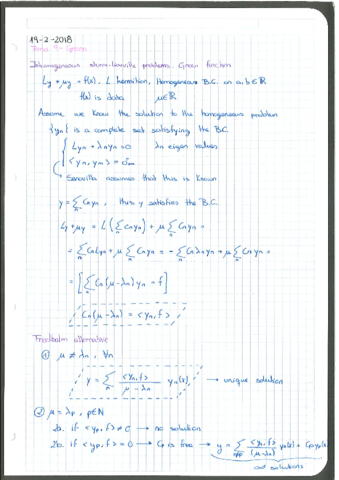 19-2-2018
Tema 9 - Green
Inhomogeneous sturm-liouville problems. Green function
Ly + μy = f(x). L hermitian, Homogeneous B.C. on a,b∈ℝ
f(x) is data μ∈ℝ
Assume we know the solution to the homogeneous problem
{yn} is a complete set satisfying the B.C.
{ Lyn + λnyn = 0 λn eigen values
<yn, ym> = δnm
Senovilla assumes that this is known
y = Σn Cnyn, thus y satisfies the B.C.
Ly + μy = L(Σn Cnyn) + μ Σn Cnyn =
= Σn CnLyn + μ Σn Cnyn = - Σn Cnλnyn + μ Σn Cnyn =
= [Σn Cn(μ-λn)yn = f]
Cn(μ-λn) = <yn, f>
Fredholm alternative
① μ ≠ λn, ∀n
y = Σn <yn, f> / (μ - λn) yn(x) → unique solution
② μ = λp, p∈ℕ
2a. if <yp, f> ≠ 0 → no solution
2b. if <yp, f> = 0 → Cp is free → y = Σn≠p <yn, f> / (μ-λn) yn(x) + Cpyp(x)
solutions